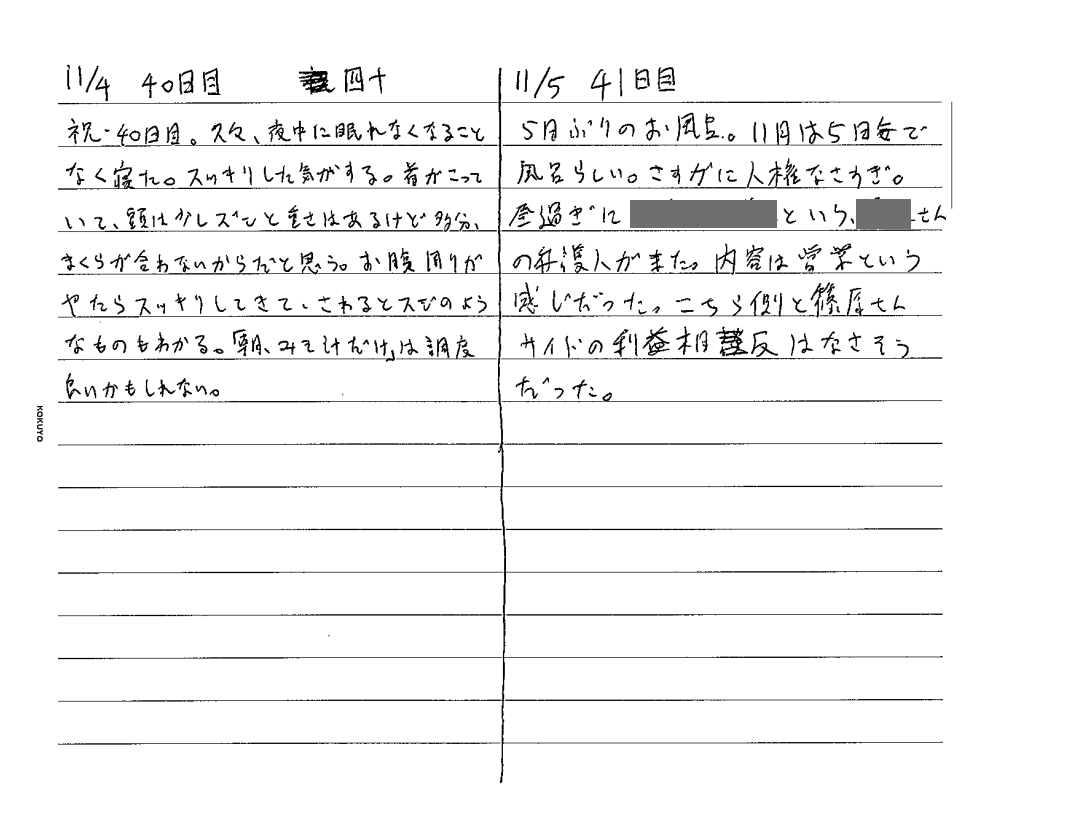 11/4 40日目 四十
祝・40日目。久々、夜中に眠れなくなること
なく寝た。スッキリした気がする。首がこって
いて、頭は少しズンと重さはあるけど多分、
まくらが合わないからだと思う。お腹周りが
やたらスッキリしてきて、さわるとスジのよう
なものもわかる。「朝、みそ汁だけ」は調度
良いかもしれない。
11/5 41日目
5日ぶりのお風呂。11月は5日毎で
風呂らしい。さすがに人権なさすぎ。
昼過ぎに という、 せん
の弁護人が来た。内容は営業という
感じだった。こちら側と篠原せん
サイドの利益相反はなさそう
だった。
KOKUYO